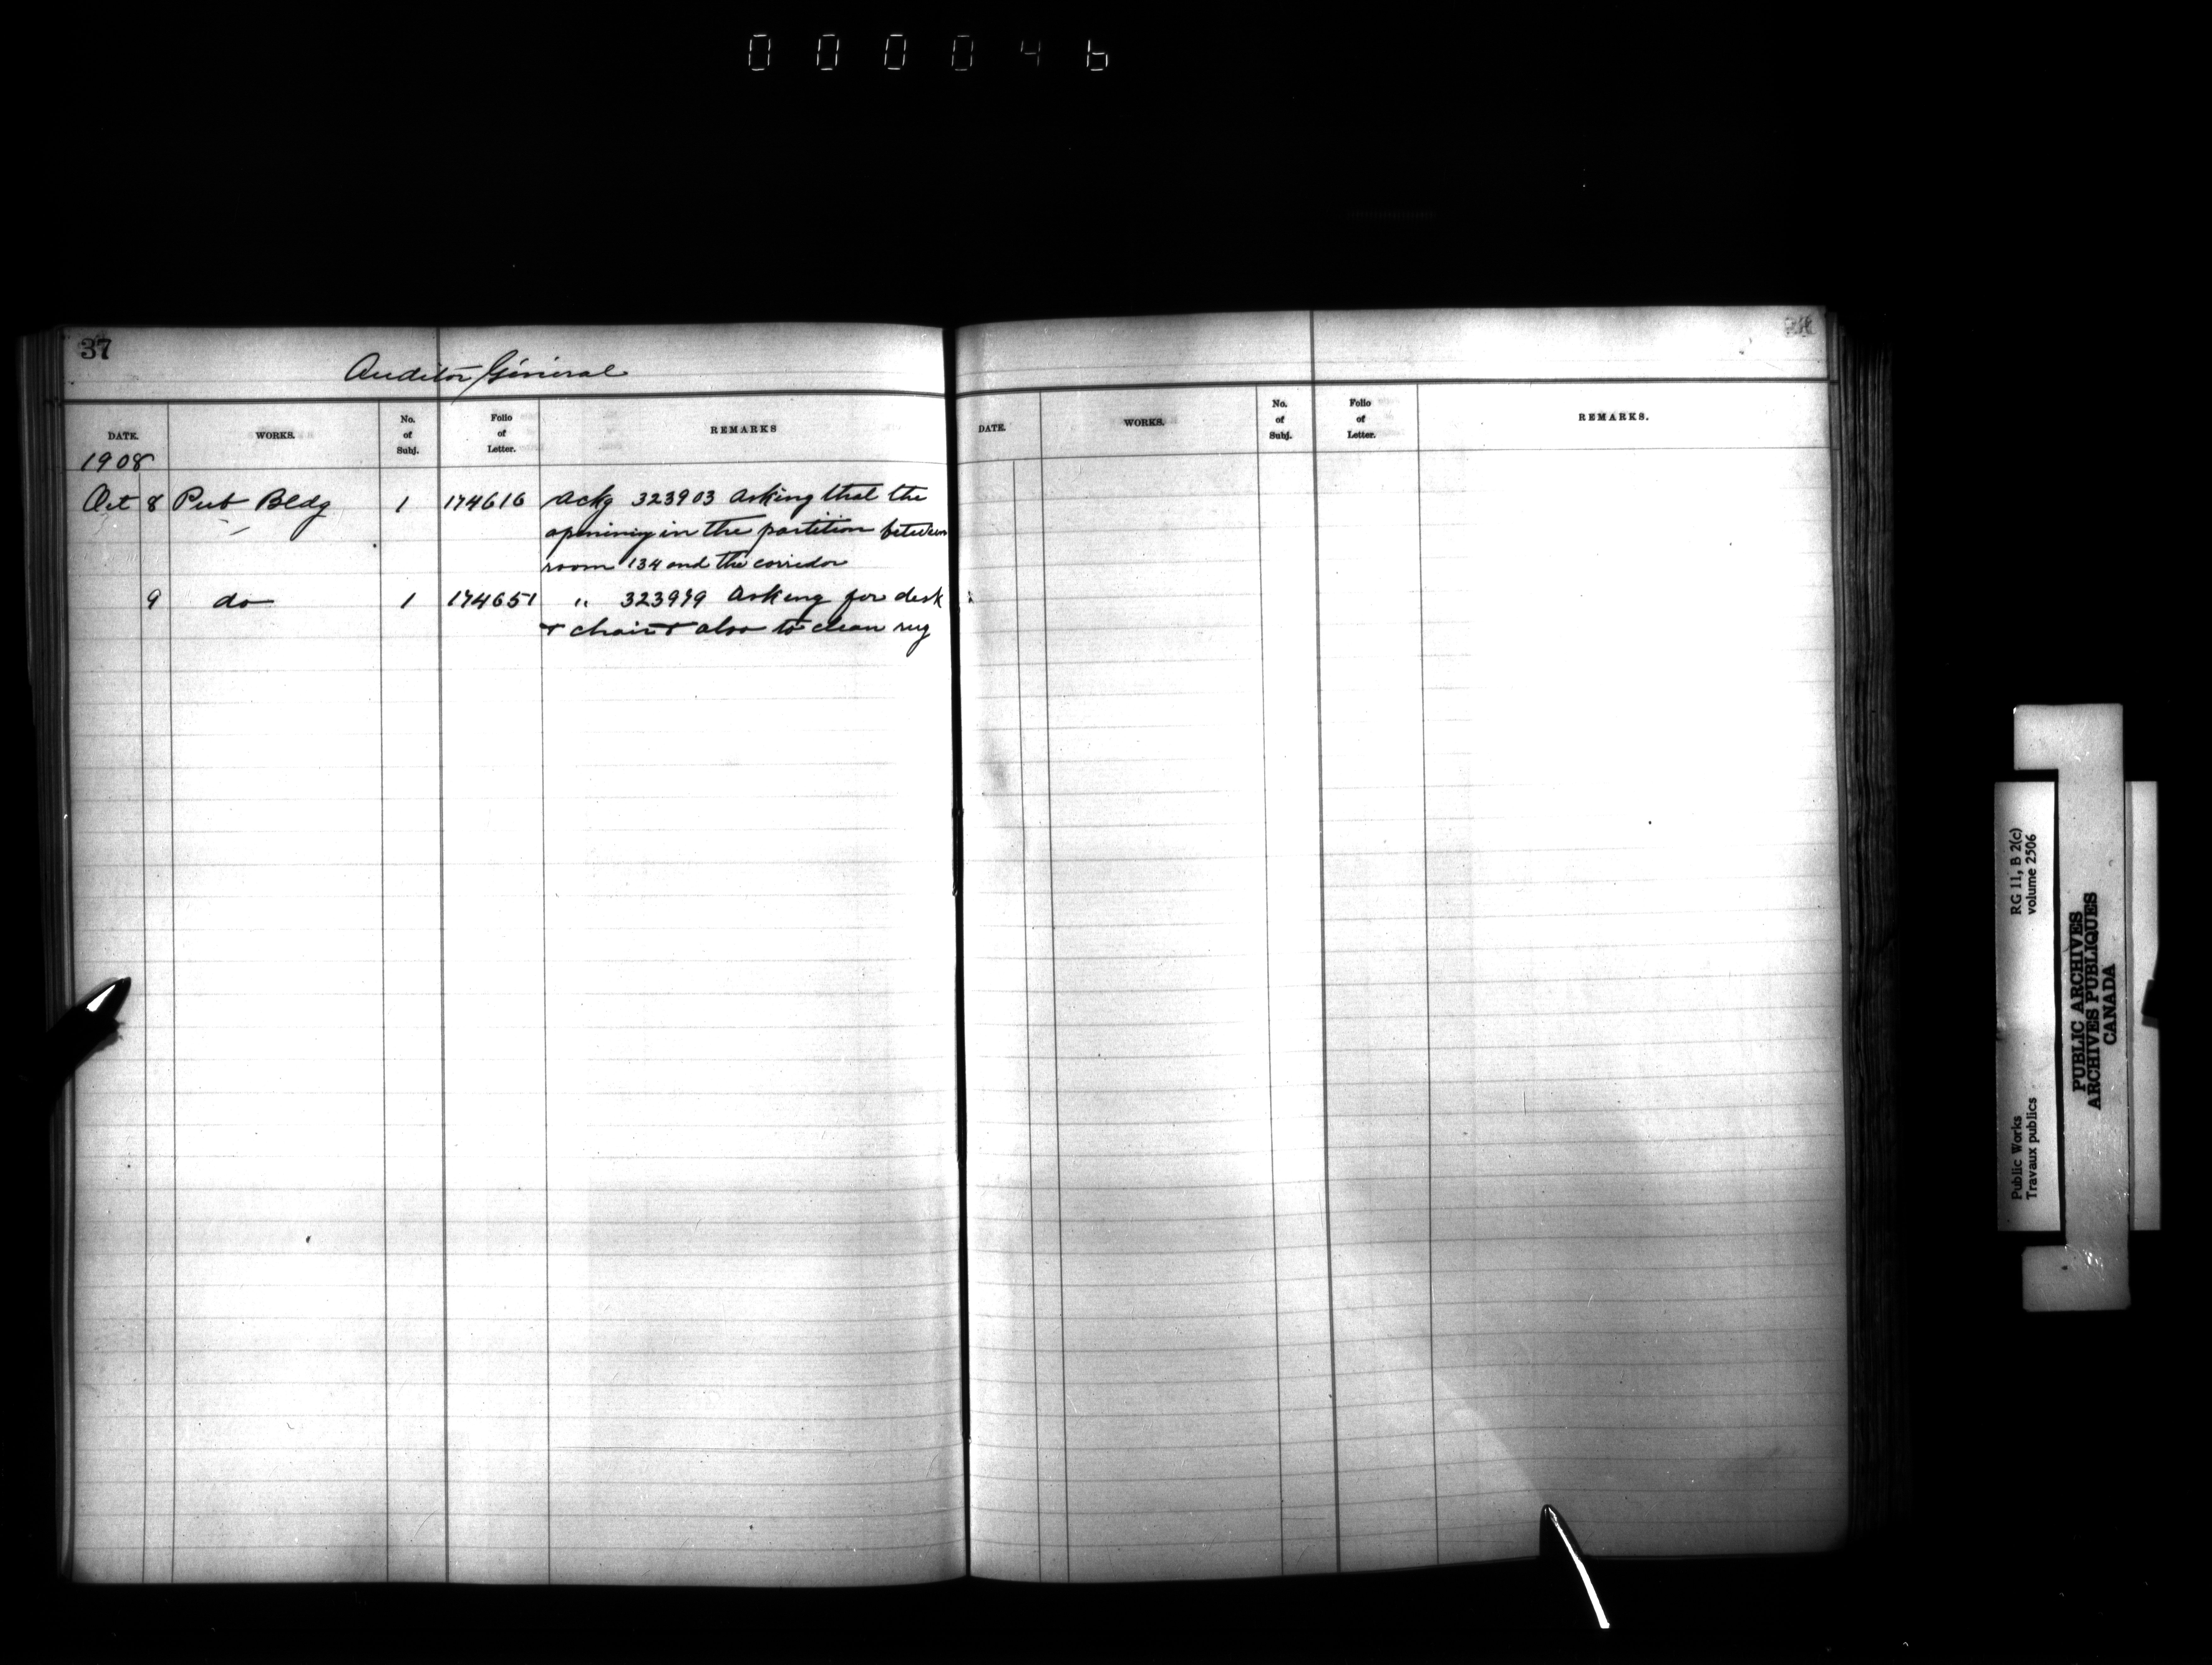 000046
37
Auditor General
DATE. WORKS. No. of Subj. Folio of Letter. REMARKS
1908
Oct 8 Pub Bldg 1 174616 Ackg 323903 Asking that the
opening in the partition between
room 134 and the corridor
9 do 1 174651 " 323979 Asking for desk
& chair & also to clean rug
DATE. WORKS. No. of Subj. Folio of Letter. REMARKS.
Public Works RG 11, B 2(c)
Travaux publics volume 2506
PUBLIC ARCHIVES
ARCHIVES PUBLIQUES
CANADA